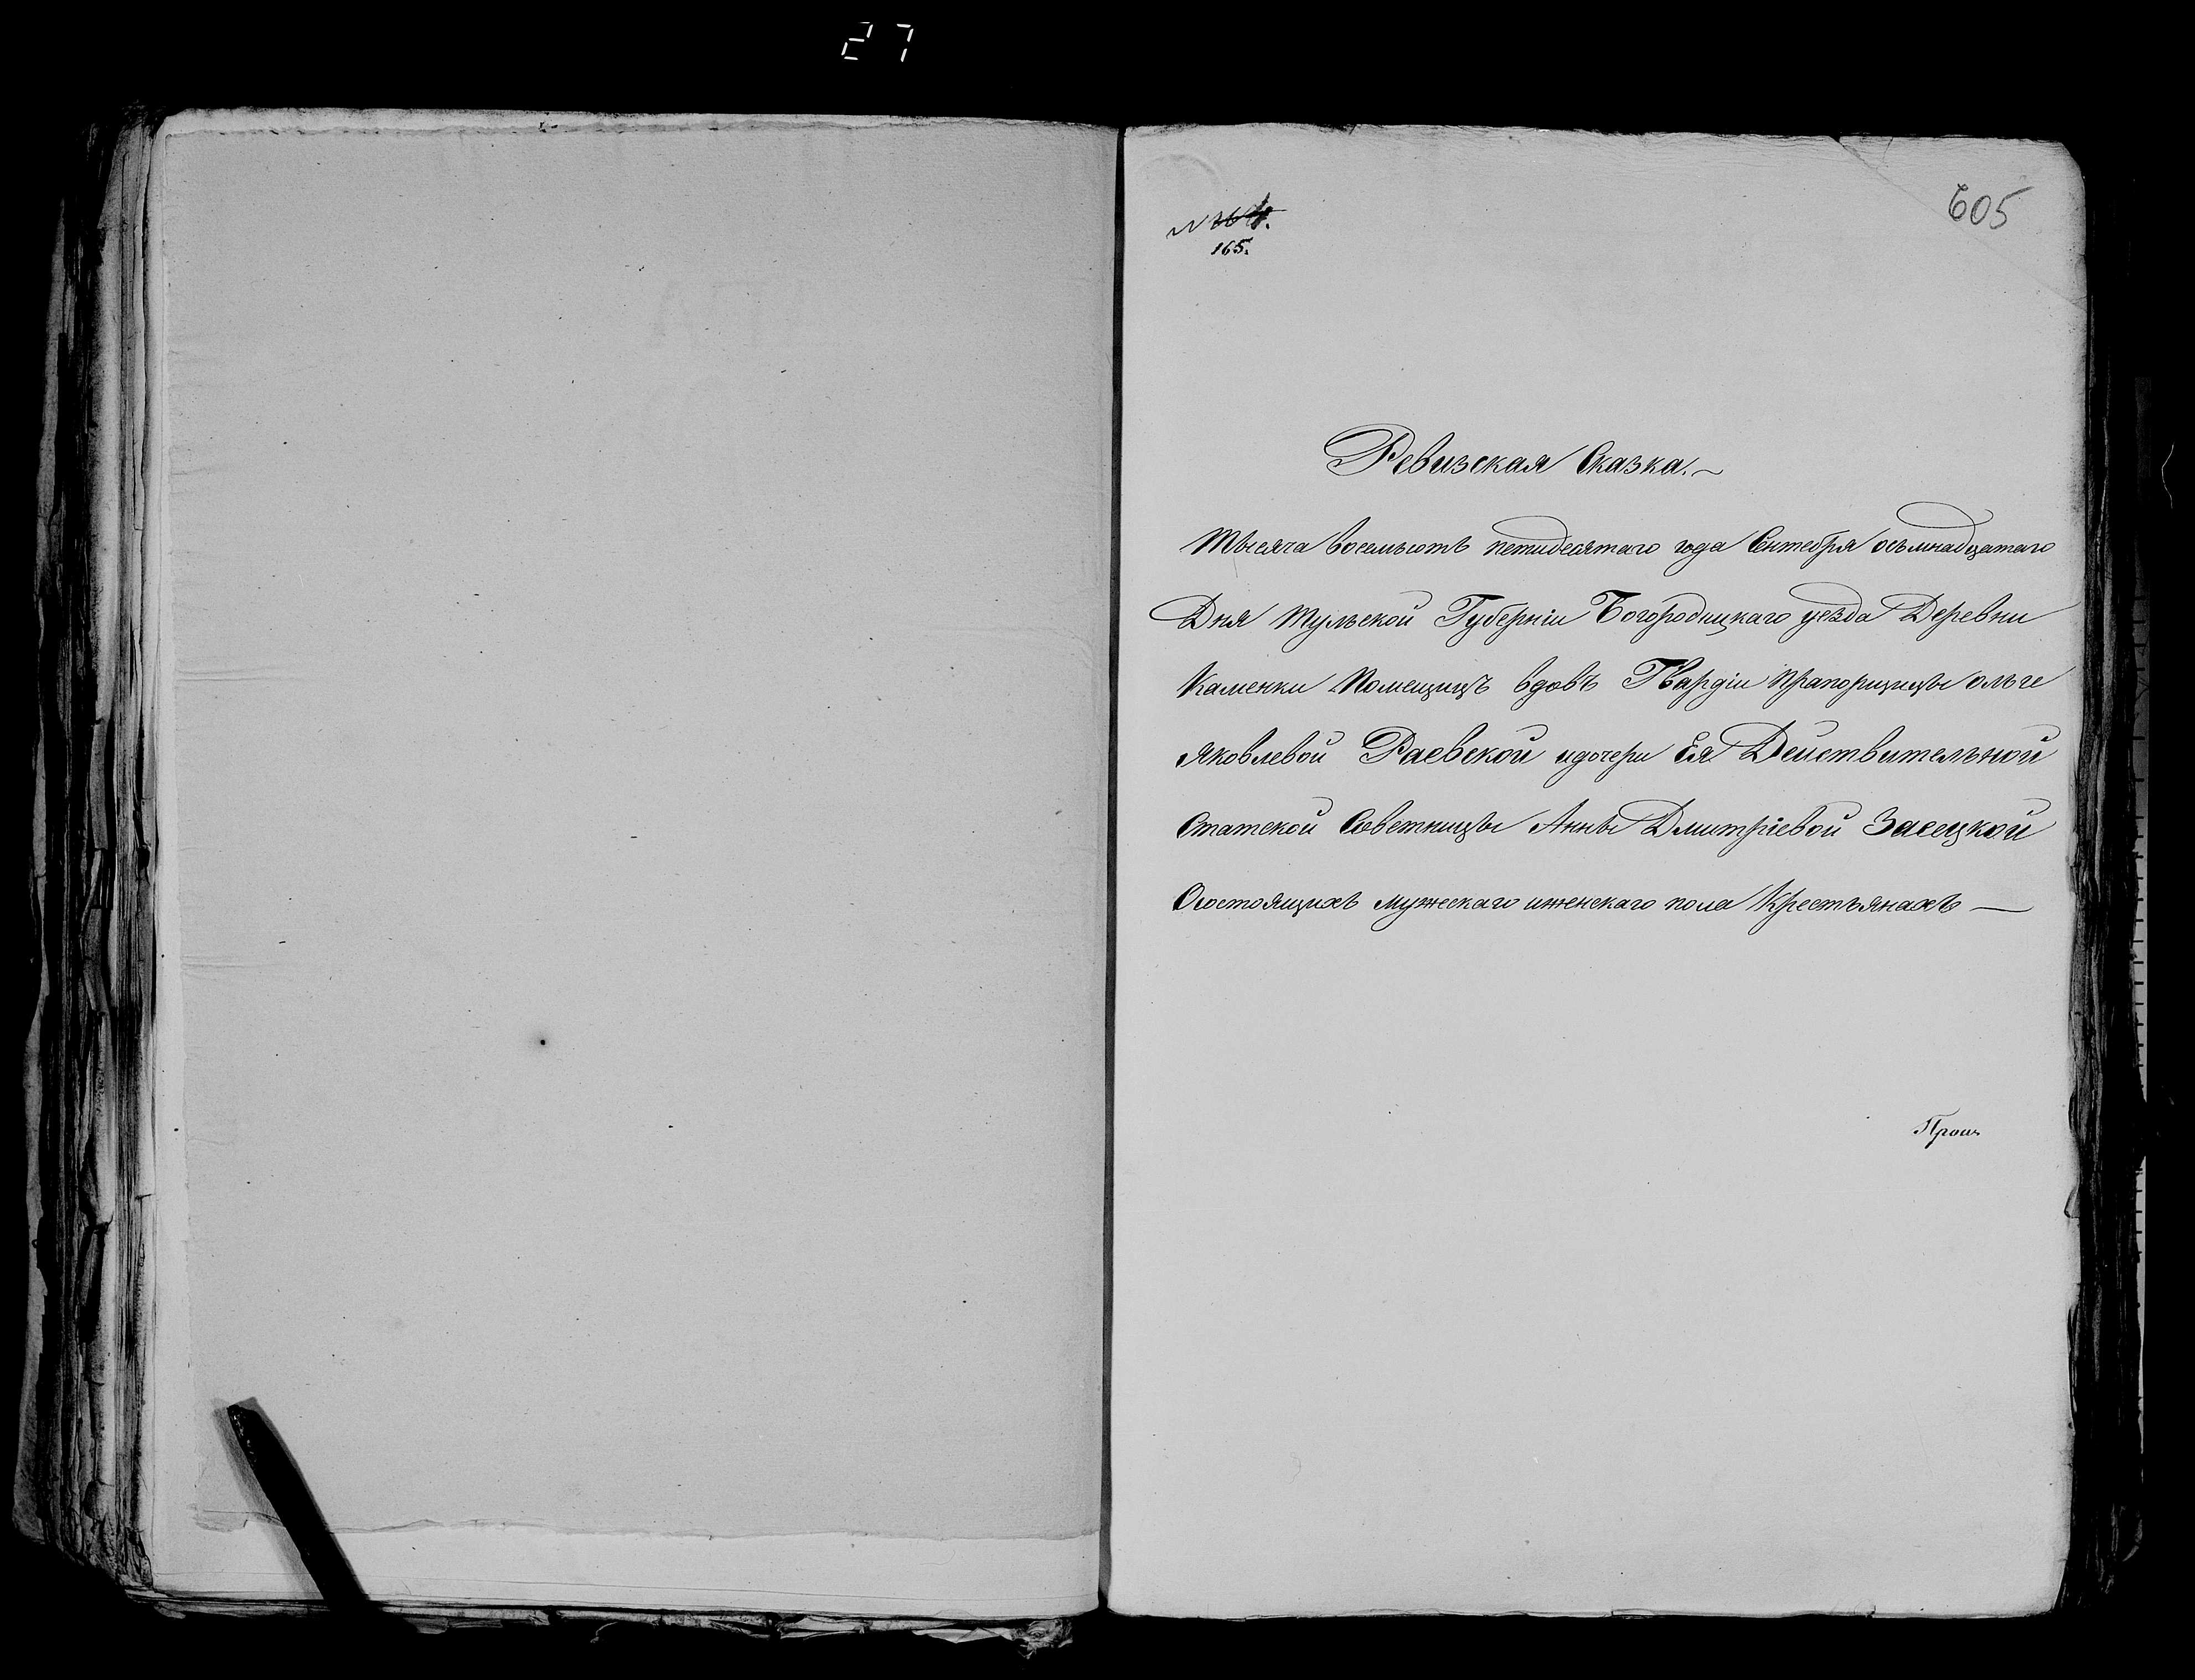 27
605
N 164.
165.
Ревизская Сказка.
Тысяча восемьсотъ петидесятаго года Сентебря осьмнадцатаго
Дня Тульской Губерніи Богородицкаго уезда Деревни
Каменки Помещицъ вдовъ Гвардіи прапорщицы ольге
Яковлевой Раевской идочери Ея Действительной
Статской Советницы Анны Дмитріевой Заецкой
Осостоящихъ мужескаго иженскаго пола Крестьянахъ —